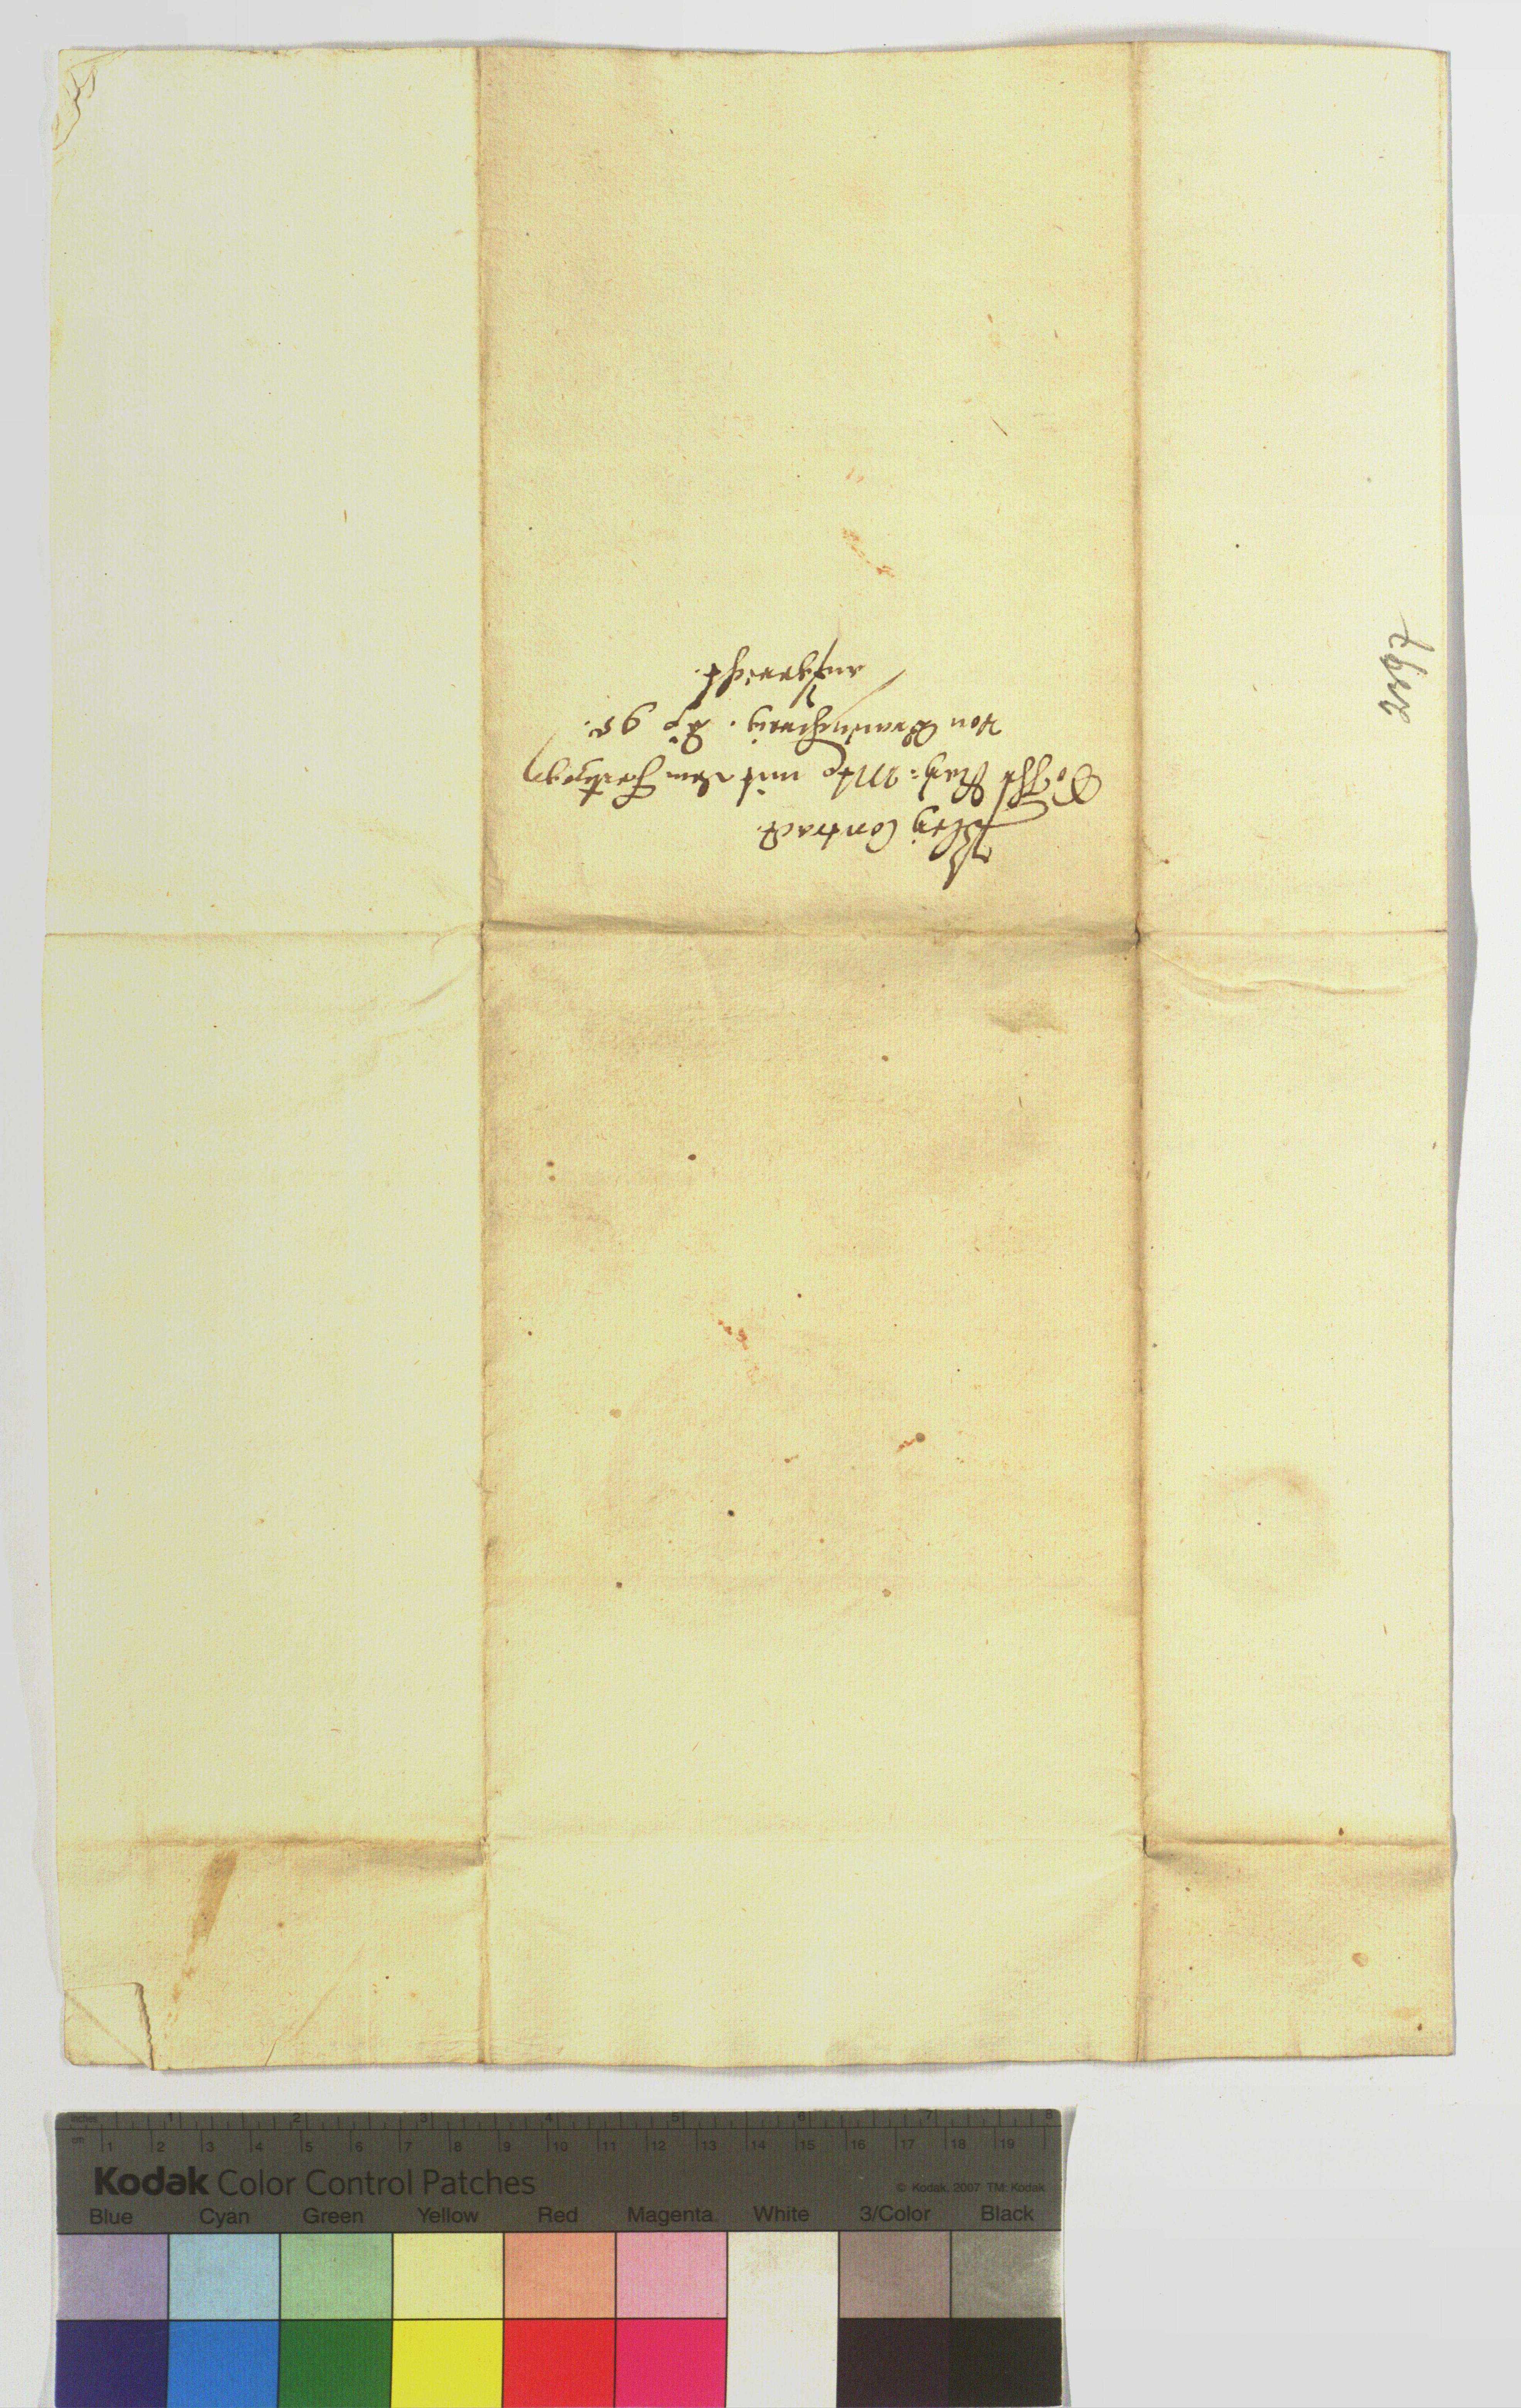 Bley Contract.
Kay: Mtt mit dem Hertzogen
von Braunschweig. Aº 95.
aufgericht.
2197
inches 1 2 3 4 5 6 7 8
cm 1 2 3 4 5 6 7 8 9 10 11 12 13 14 15 16 17 18 19
Kodak Color Control Patches
© Kodak, 2007 TM: Kodak
Blue Cyan Green Yellow Red Magenta White 3/Color Black